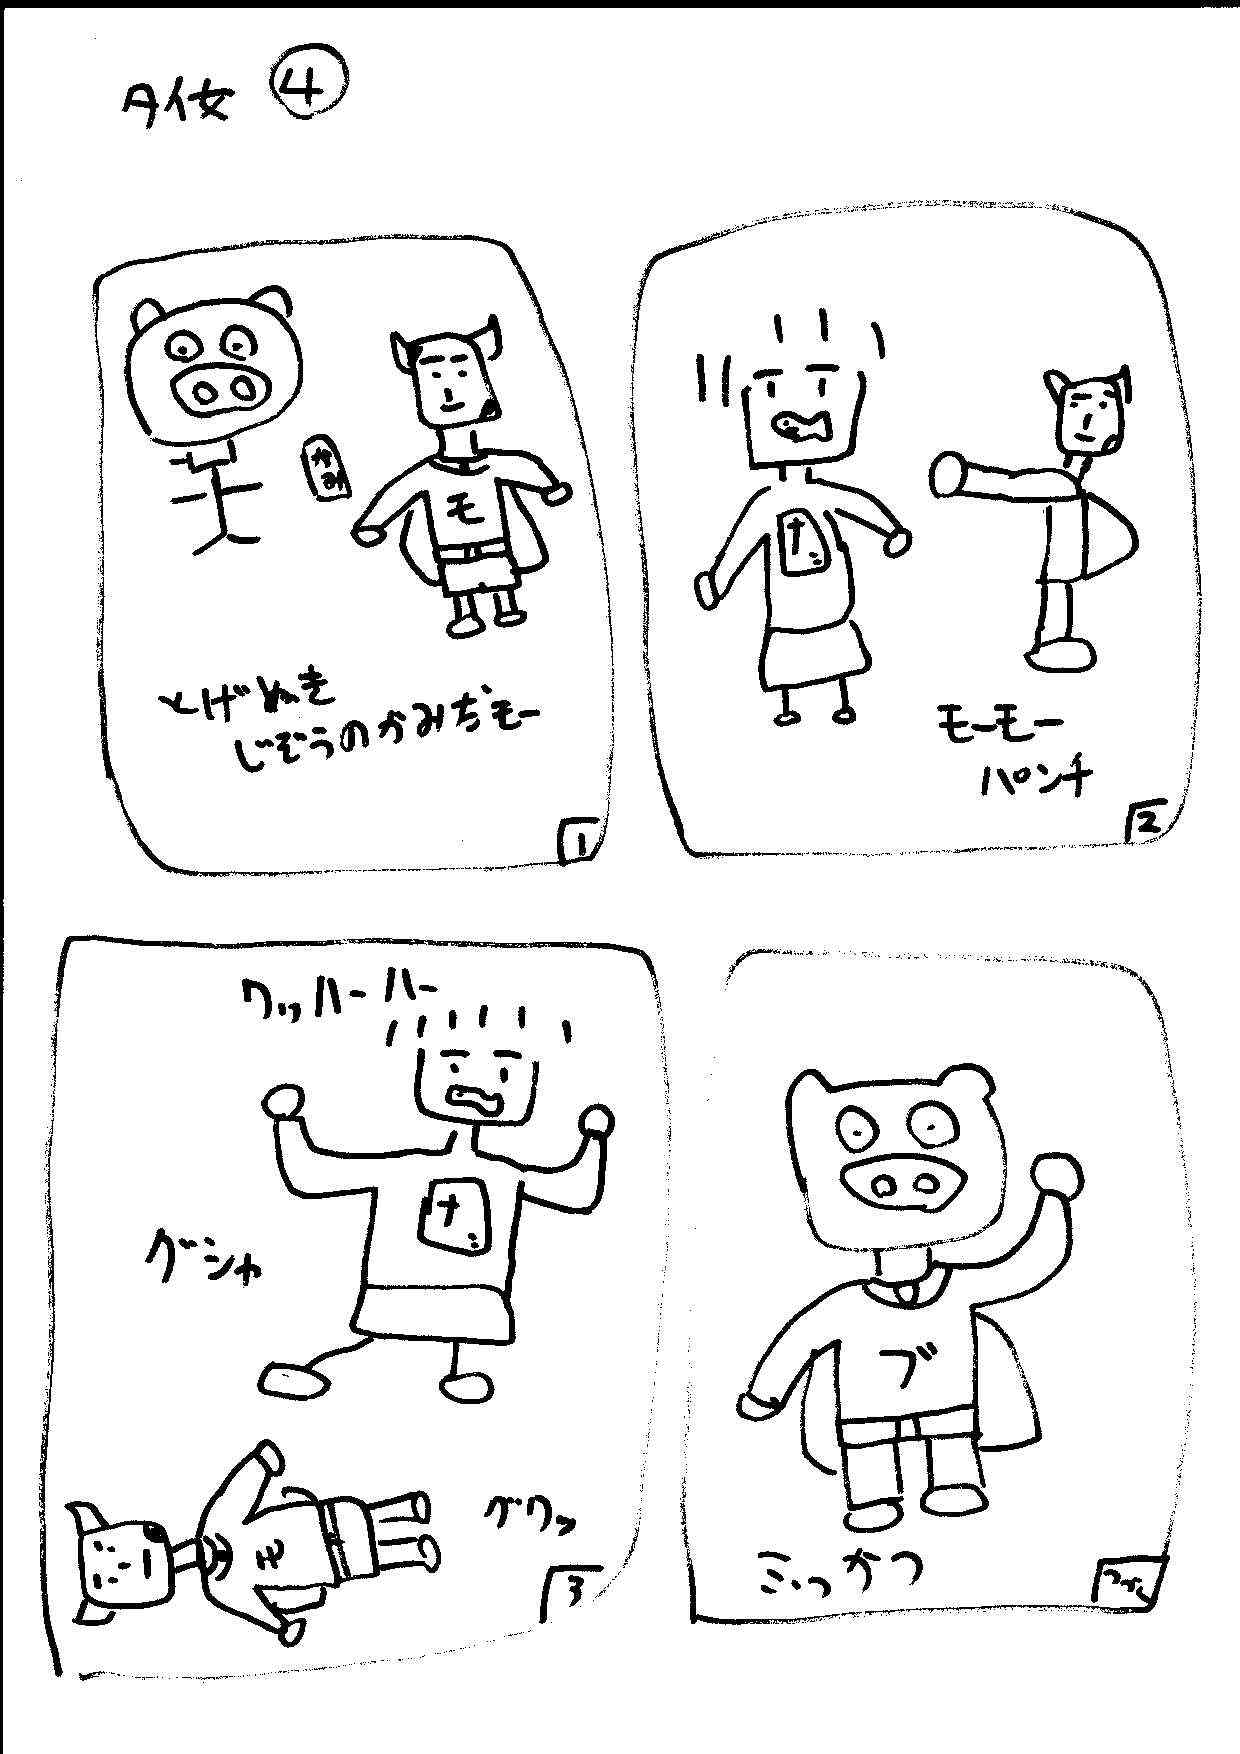 ④
かみ
モ
とげぬき
じぞうのかみだモー
1
サ
モーモー
パンチ
2
ワッハーハー
サ
グシャ
モ
グワッ
3
ブ
ミっかつ
つづく